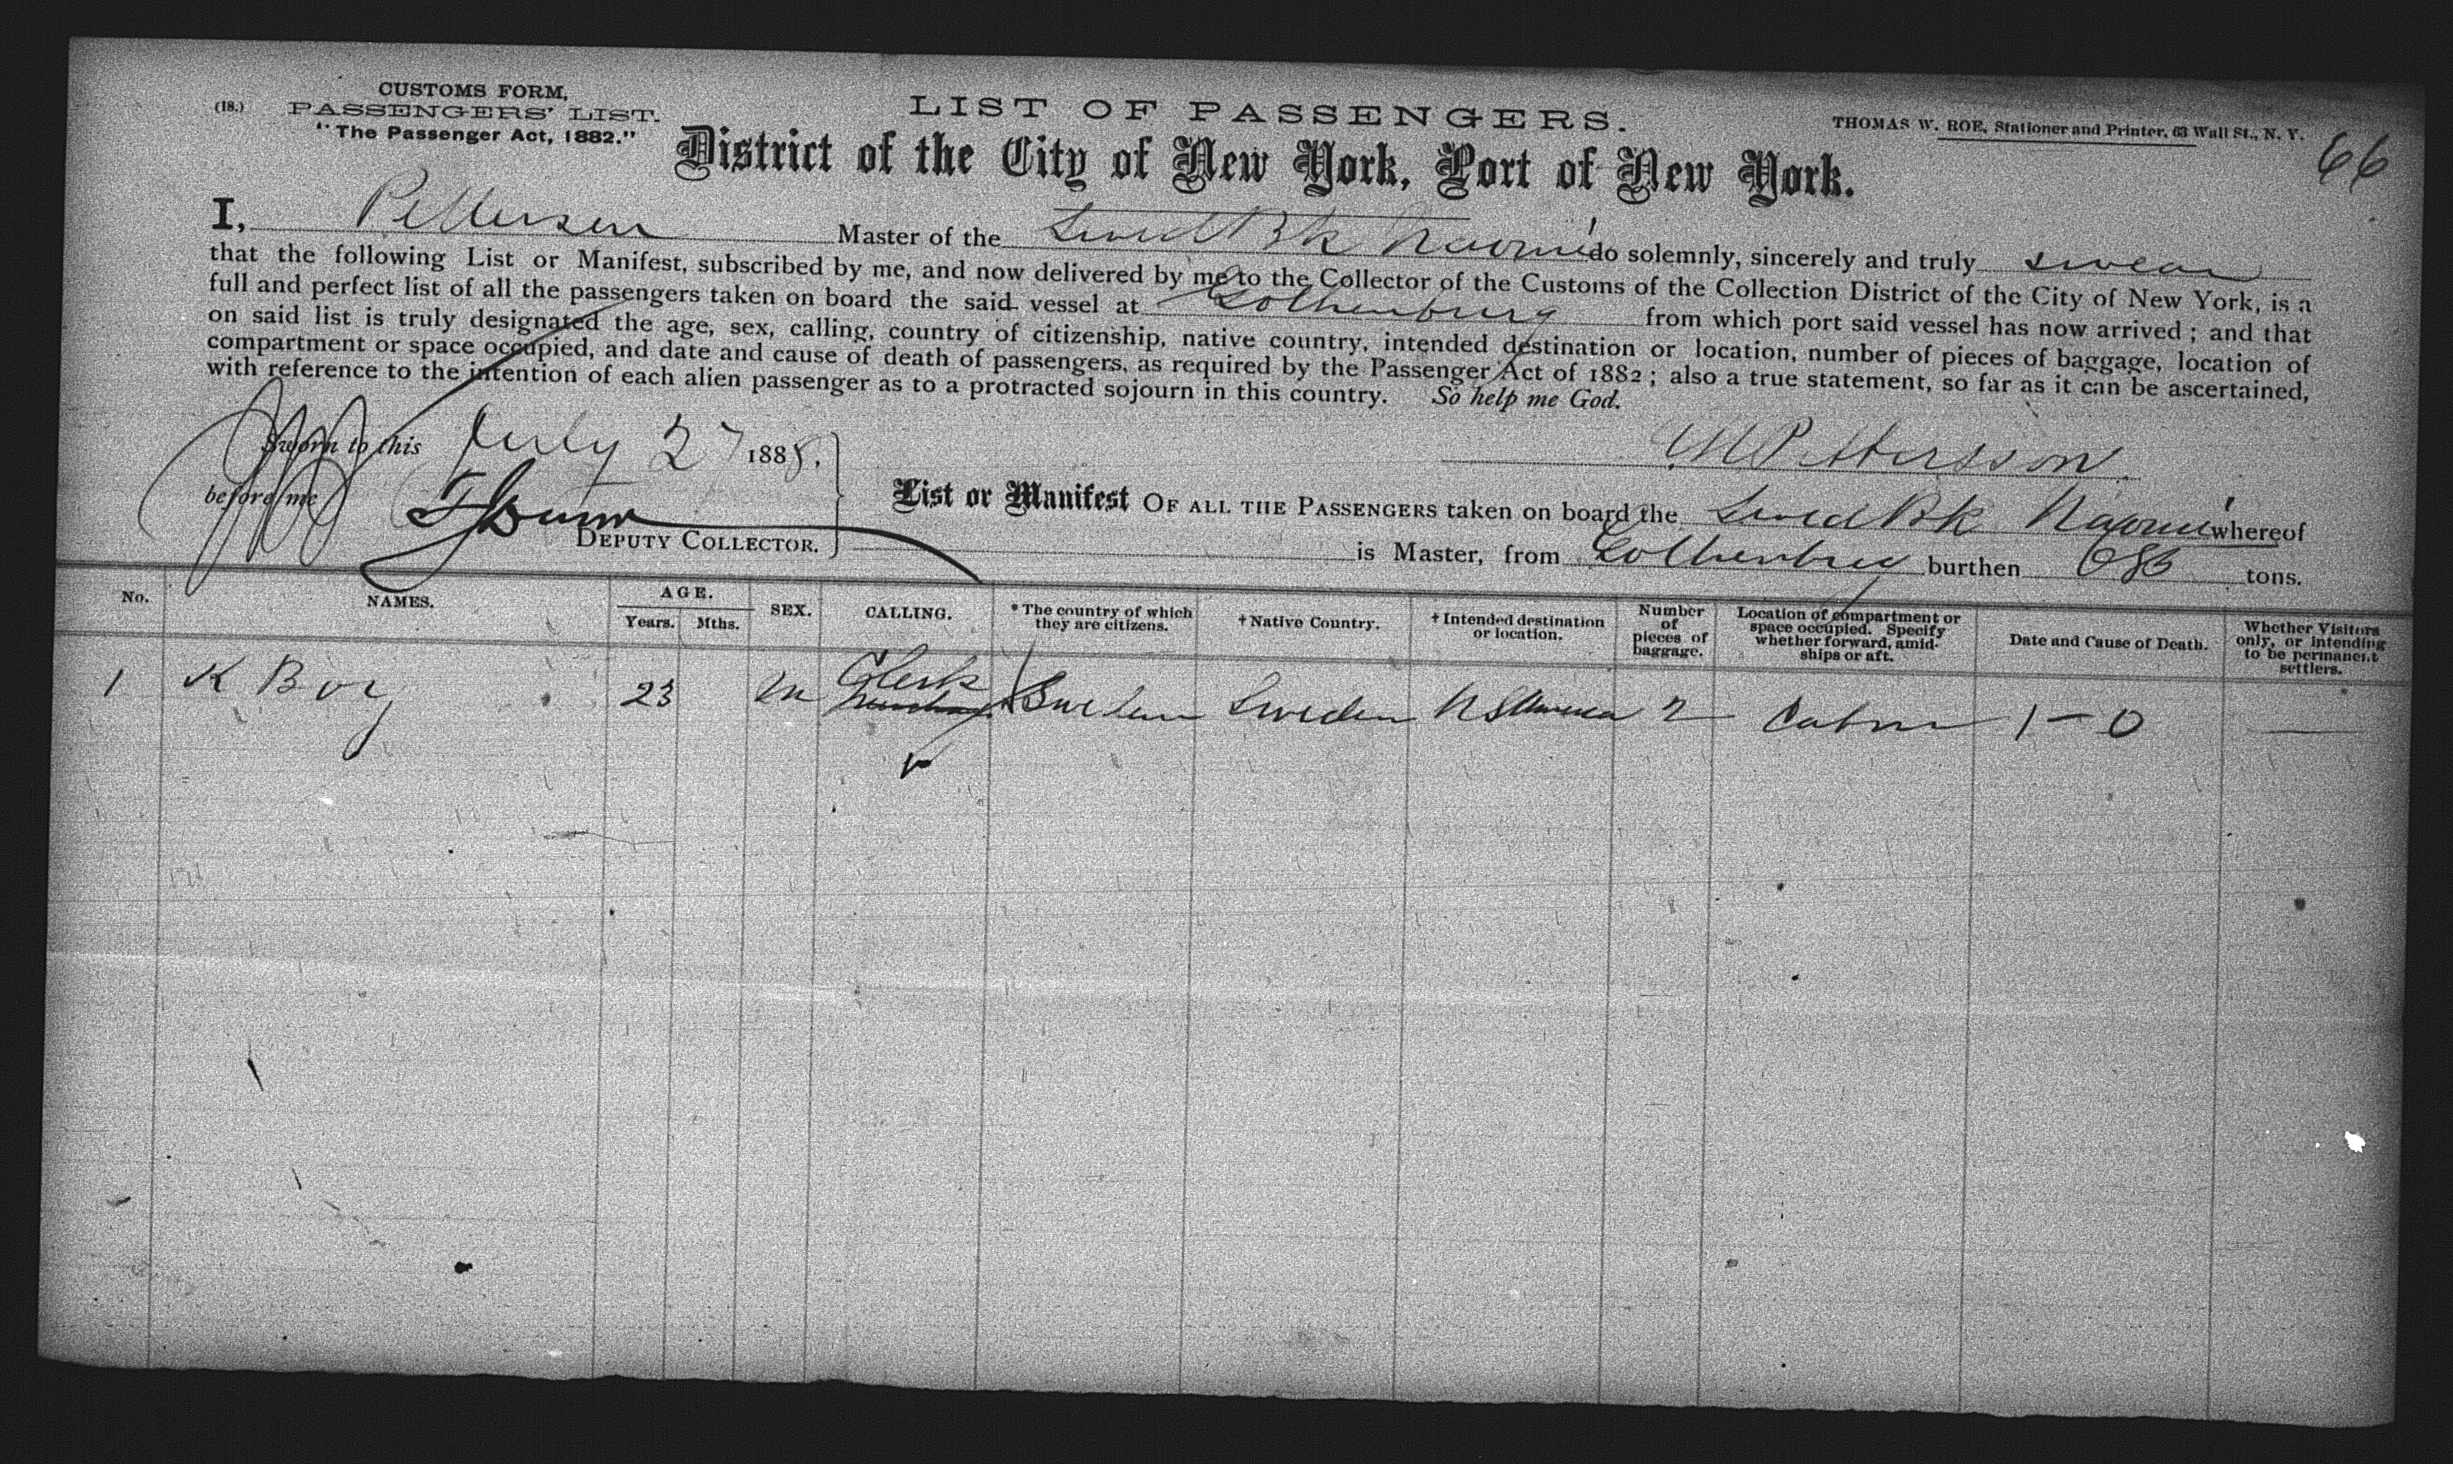 CUSTOMS FORM,
(18.) PASSENGERS' LIST.
"The Passenger Act, 1882."
LIST OF PASSENGERS.
THOMAS W. ROE, Stationer and Printer, 63 Wall St., N. Y.
66
District of the City of New York, Port of New York.
I, Pettersen Master of the Swed Bk Naomi do solemnly, sincerely and truly swear
that the following List or Manifest, subscribed by me, and now delivered by me to the Collector of the Customs of the Collection District of the City of New York, is a
full and perfect list of all the passengers taken on board the said vessel at Gothenburg from which port said vessel has now arrived; and that
on said list is truly designated the age, sex, calling, country of citizenship, native country, intended destination or location, number of pieces of baggage, location of
compartment or space occupied, and date and cause of death of passengers, as required by the Passenger Act of 1882; also a true statement, so far as it can be ascertained,
with reference to the intention of each alien passenger as to a protracted sojourn in this country. So help me God.
Sworn to this July 27 1888,
Pettersson
before me
DEPUTY COLLECTOR.
List or Manifest OF ALL THE PASSENGERS taken on board the Swed Bk Naomi whereof
is Master, from Gothenburg burthen tons.
No. NAMES. AGE. Years. Mths. SEX. CALLING. * The country of which they are citizens. † Native Country. † Intended destination or location. Number of pieces of baggage. Location of compartment or space occupied. Specify whether forward, amidships or aft. Date and Cause of Death. Whether Visitors only, or intending to be permanent settlers.
1 K Boy 23 m Clerk Sweden Sweden N S America 2 Cabin 1 – 0 —